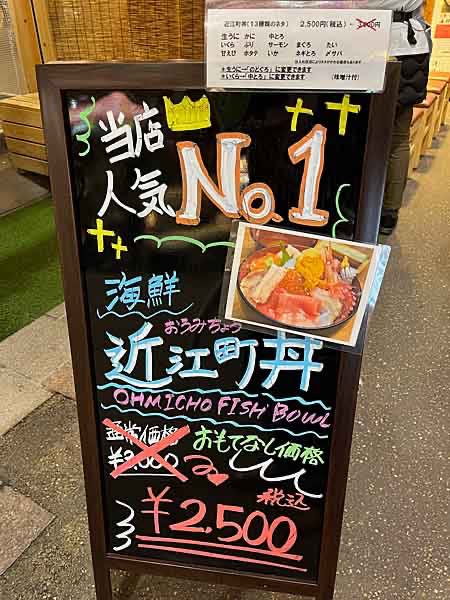 近江町丼(13種類のネタ) 2,500円(税込)
生うに かに 中とろ
いくら ぶり サーモン まぐろ たい
甘えび ホタテ いか ネギとろ メサバ
＊生うに→「のどぐろ」に変更できます
＊いくら→「中とろ」に変更できます (味噌汁付)
当店
人気
No.1
海鮮
おうみちょう
近江町丼
OHMICHO FISH BOWL
通常価格
¥3,000
おもてなし価格
税込
¥2,500